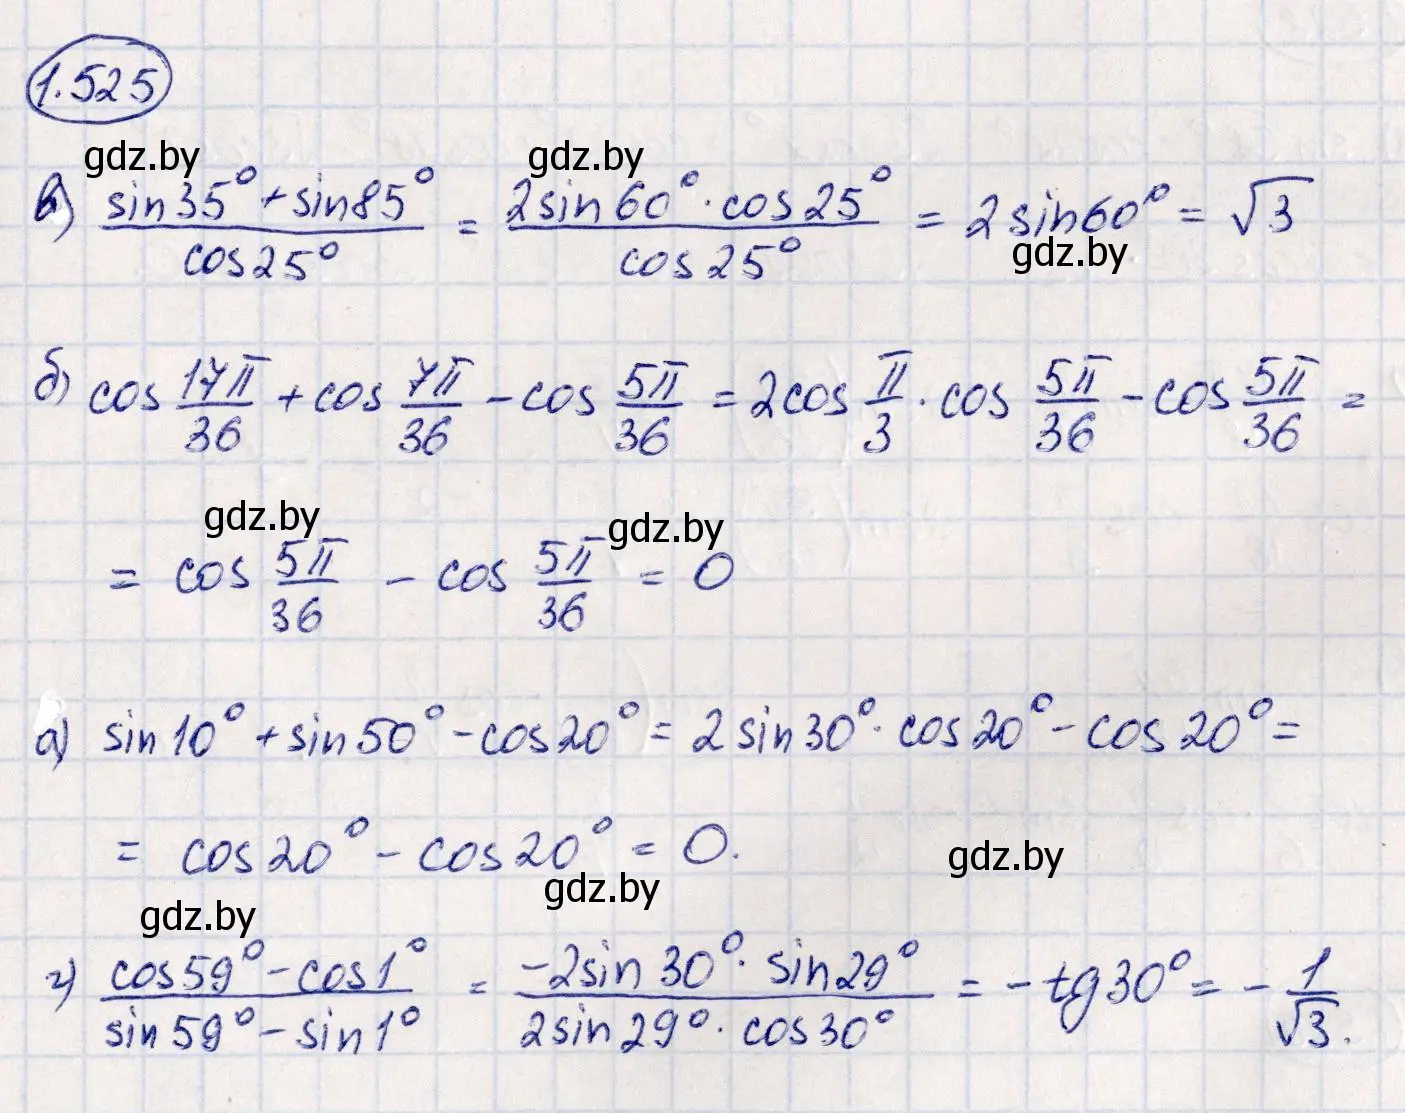 1.525
gdz.by gdz.by
в) (sin35° + sin85°)/cos25° = (2sin60° · cos25°)/cos25° = 2sin60° = √3
gdz.by
б) cos 17π/36 + cos 7π/36 - cos 5π/36 = 2cos π/3 · cos 5π/36 - cos 5π/36 =
gdz.by gdz.by
= cos 5π/36 - cos 5π/36 = 0
а) sin10° + sin50° - cos20° = 2sin30° · cos20° - cos20° =
= cos20° - cos20° = 0.
gdz.by
gdz.by
gdz.by
г) (cos59° - cos1°)/(sin59° - sin1°) = (-2sin30° · sin29°)/(2sin29° · cos30°) = -tg30° = -1/√3.